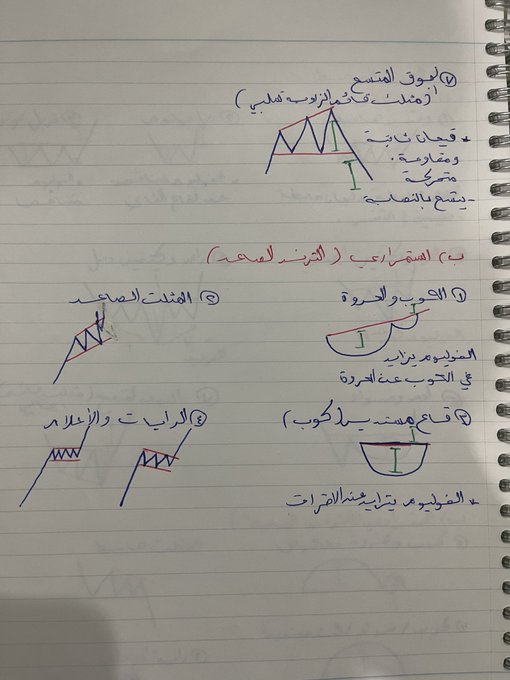 ٧ البوق المتسع
(مثلث قائم الزاوية سلبي)
* قيعان ثابتة
ومقاومة
متحركة
- يتسع بالنهاية
ب) استمراري (الترند الصاعد)
١ الكوب والعروة
الفوليوم يزايد
في الكوب عن العروة
٢ المثلث الصاعد
٣ قاع مستدير (كوب)
* الفوليوم يتزايد عند الاختراق
٤ الرايات والأعلام